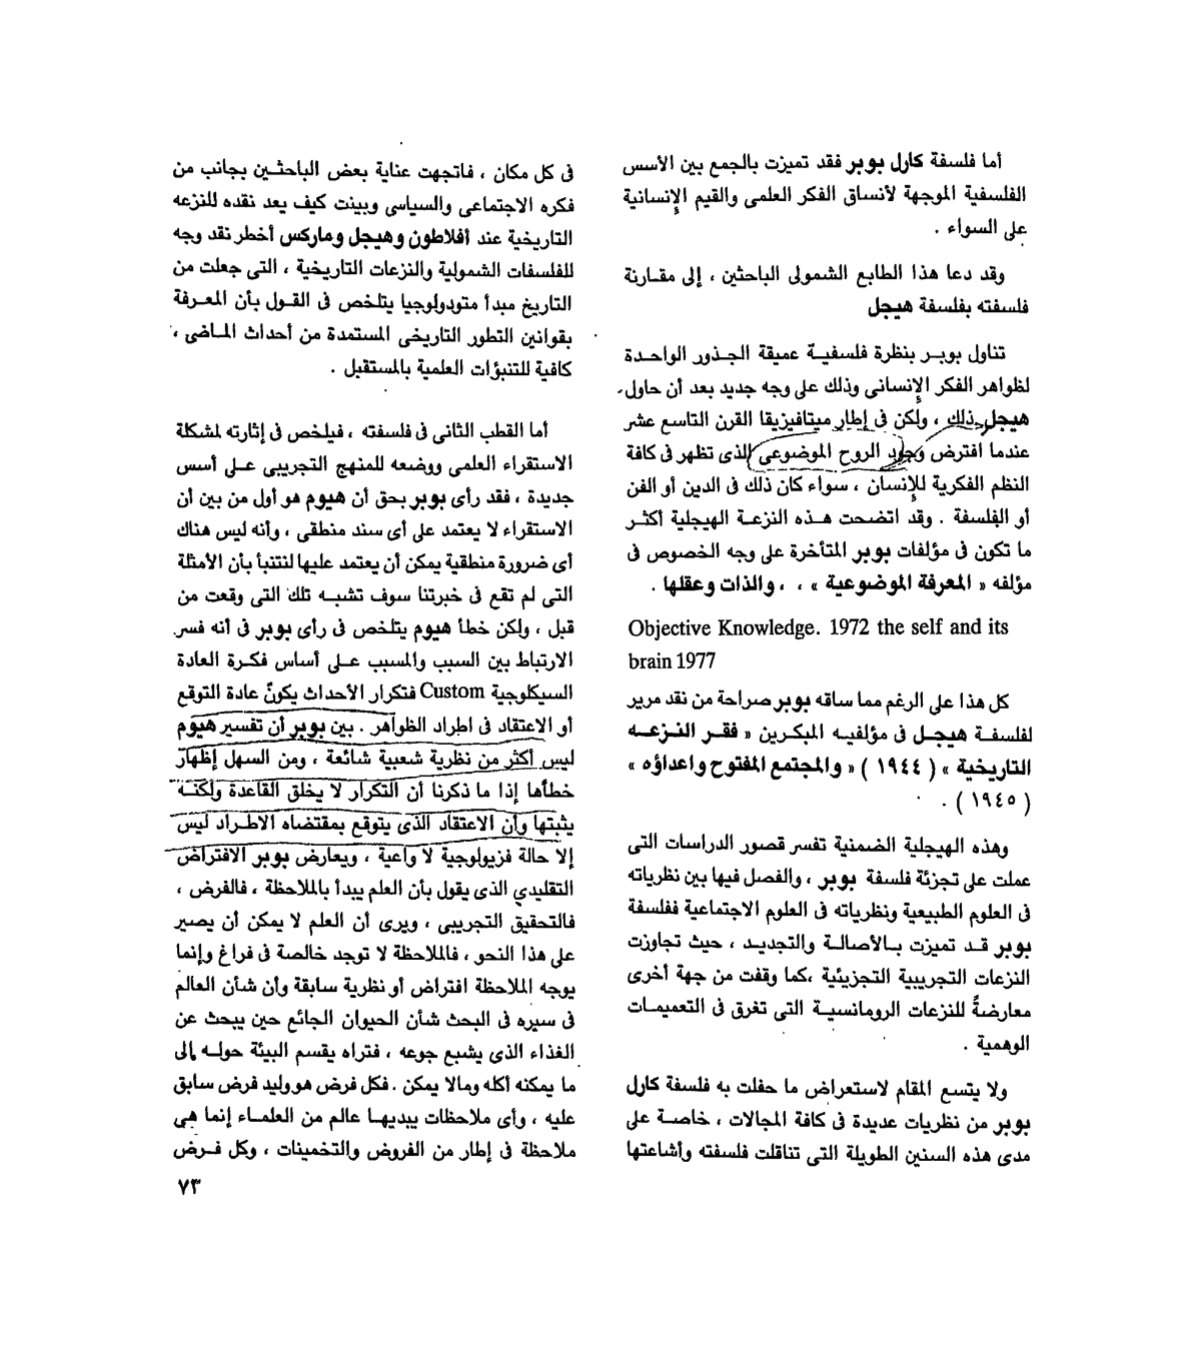 أما فلسفة كارل بوبر فقد تميزت بالجمع بين الأسس
الفلسفية الموجهة لأنساق الفكر العلمى والقيم الإنسانية
على السواء .
وقد دعا هذا الطابع الشمولى الباحثين ، إلى مقارنة
فلسفته بفلسفة هيجل
تناول بوبر بنظرة فلسفية عميقة الجذور الواحدة
لظواهر الفكر الإنسانى وذلك على وجه جديد بعد أن حاول
هيجل ذلك ، ولكن فى إطار ميتافيزيقا القرن التاسع عشر
عندما افترض وجود الروح الموضوعى الذى تظهر فى كافة
النظم الفكرية للإنسان ، سواء كان ذلك فى الدين أو الفن
أو الفلسفة . وقد اتضحت هذه النزعة الهيجلية أكثر
ما تكون فى مؤلفات بوبر المتأخرة على وجه الخصوص فى
مؤلفه « المعرفة الموضوعية » ، ، والذات وعقلها .
Objective Knowledge. 1972 the self and its
brain 1977
كل هذا على الرغم مما ساقه بوبر صراحة من نقد مرير
لفلسفة هيجل فى مؤلفيه المبكرين « فقر النزعه
التاريخية » ( ١٩٤٤ ) « والمجتمع المفتوح واعداؤه »
( ١٩٤٥ ) .
وهذه الهيجلية الضمنية تفسر قصور الدراسات التى
عملت على تجزئة فلسفة بوبر ، والفصل فيها بين نظرياته
فى العلوم الطبيعية ونظرياته فى العلوم الاجتماعية ففلسفة
بوبر قد تميزت بالأصالة والتجديد ، حيث تجاوزت
النزعات التجريبية التجزيئية ،كما وقفت من جهة أخرى
معارضةً للنزعات الرومانسية التى تغرق فى التعميمات
الوهمية .
ولا يتسع المقام لاستعراض ما حفلت به فلسفة كارل
بوبر من نظريات عديدة فى كافة المجالات ، خاصة على
مدى هذه السنين الطويلة التى تناقلت فلسفته وأشاعتها
فى كل مكان ، فاتجهت عناية بعض الباحثين بجانب من
فكره الاجتماعى والسياسى وبينت كيف يعد نقده للنزعه
التاريخية عند أفلاطون وهيجل وماركس أخطر نقد وجه
للفلسفات الشمولية والنزعات التاريخية ، التى جعلت من
التاريخ مبدأ متودولوجيا يتلخص فى القول بأن المعرفة
بقوانين التطور التاريخى المستمدة من أحداث الماضى ،
كافية للتنبؤات العلمية بالمستقبل .
أما القطب الثانى فى فلسفته ، فيلخص فى إثارته لمشكلة
الاستقراء العلمى ووضعه للمنهج التجريبى على أسس
جديدة ، فقد رأى بوبر بحق أن هيوم هو أول من بين أن
الاستقراء لا يعتمد على أى سند منطقى ، وأنه ليس هناك
أى ضرورة منطقية يمكن أن يعتمد عليها لنتنبأ بأن الأمثلة
التى لم تقع فى خبرتنا سوف تشبه تلك التى وقعت من
قبل ، ولكن خطأ هيوم يتلخص فى رأى بوبر فى أنه فسر
الارتباط بين السبب والمسبب على أساس فكرة العادة
السيكلوجية Custom فتكرار الأحداث يكونّ عادة التوقع
أو الاعتقاد فى اطراد الظواهر . بين بوبر أن تفسير هيوم
ليس أكثر من نظرية شعبية شائعة ، ومن السهل إظهار
خطأها إذا ما ذكرنا أن التكرار لا يخلق القاعدة ولكنه
يثبتها وأن الاعتقاد الذى يتوقع بمقتضاه الاطراد ليس
إلا حالة فزيولوجية لا واعية ، ويعارض بوبر الافتراض
التقليدي الذى يقول بأن العلم يبدأ بالملاحظة ، فالفرض ،
فالتحقيق التجريبى ، ويرى أن العلم لا يمكن أن يصير
على هذا النحو ، فالملاحظة لا توجد خالصة فى فراغ وإنما
يوجه الملاحظة افتراض أو نظرية سابقة وأن شأن العالم
فى سيره فى البحث شأن الحيوان الجائع حين يبحث عن
الغذاء الذى يشبع جوعه ، فتراه يقسم البيئة حوله إلى
ما يمكنه أكله ومالا يمكن . فكل فرض هو وليد فرض سابق
عليه ، وأى ملاحظات يبديها عالم من العلماء إنما هى
ملاحظة فى إطار من الفروض والتخمينات ، وكل فرض
٧٣